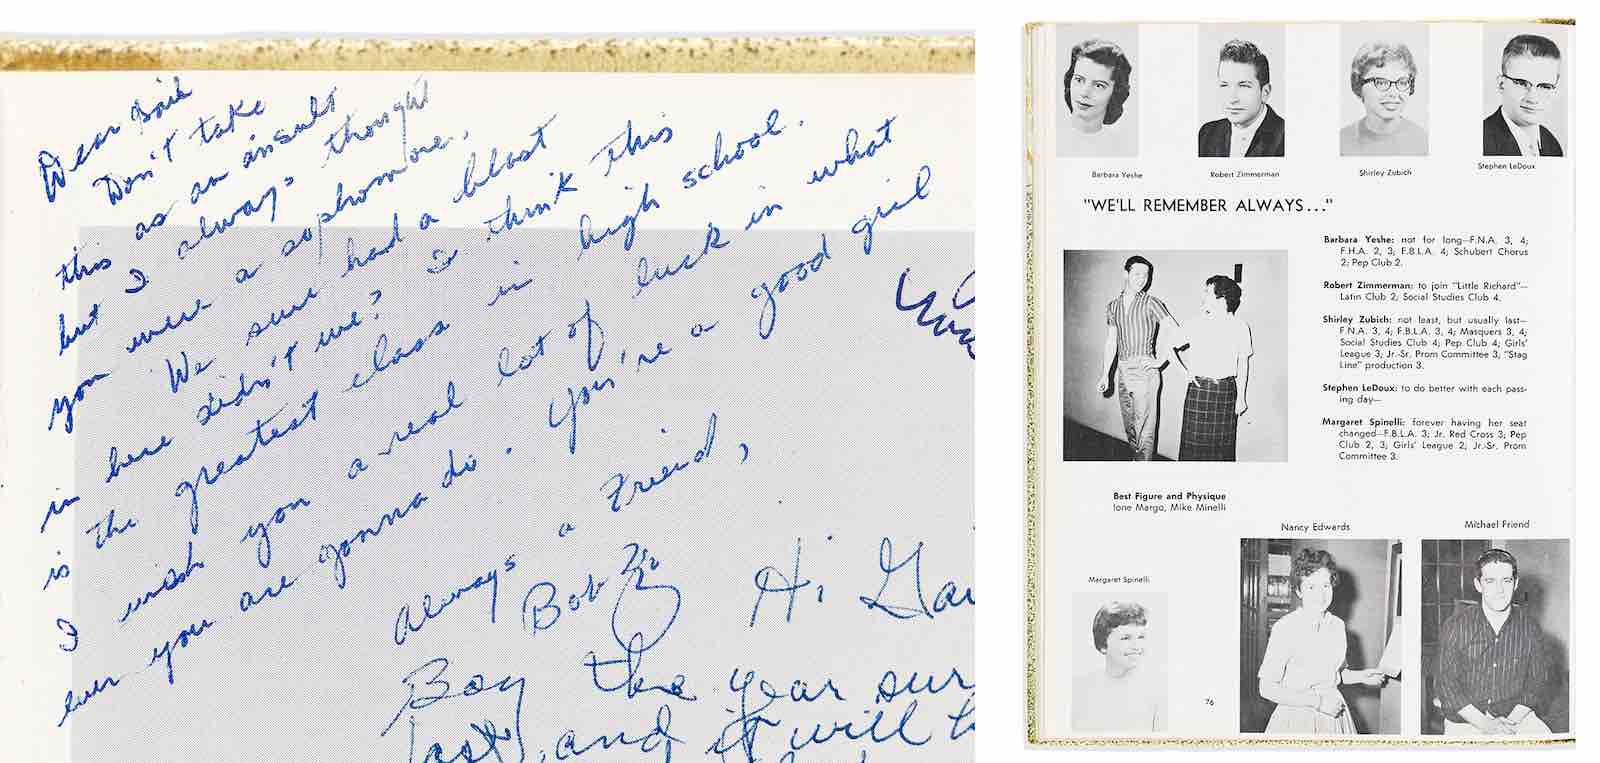 Dear Gail
Don't take
this as an insult
but I always thought
you were a sophmore.
We sure had a blast
in here didn't we? I think this
is the greatest class in high school.
I wish you a real lot of luck in what
ever you are gonna do. You're a good girl
Always a friend,
Bob
Hi
Boy the year sur
last, and it will
Barbara Yeshe
Robert Zimmerman
Shirley Zubich
Stephen LeDoux
"WE'LL REMEMBER ALWAYS..."
Barbara Yeshe: not for long—F.N.A. 3, 4;
F.H.A. 2, 3; F.B.L.A. 4; Schubert Chorus
2; Pep Club 2.
Robert Zimmerman: to join "Little Richard"—
Latin Club 2; Social Studies Club 4.
Shirley Zubich: not least, but usually last—
F.N.A. 3, 4; F.B.L.A. 3, 4; Masquers 3, 4;
Social Studies Club 4; Pep Club 4; Girls'
League 3; Jr.-Sr. Prom Committee 3; "Stag
Line" production 3.
Stephen LeDoux: to do better with each pass-
ing day—
Margaret Spinelli: forever having her seat
changed—F.B.L.A. 3; Jr. Red Cross 3; Pep
Club 2, 3; Girls' League 2; Jr.-Sr. Prom
Committee 3.
Best Figure and Physique
Ione Margo, Mike Minelli
Nancy Edwards
Michael Friend
Margaret Spinelli
76